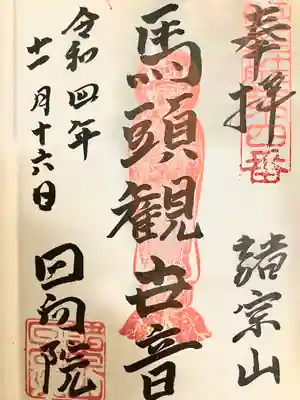 奉拝
諸宗山
馬頭観世音
令和四年
十一月十六日
回向院